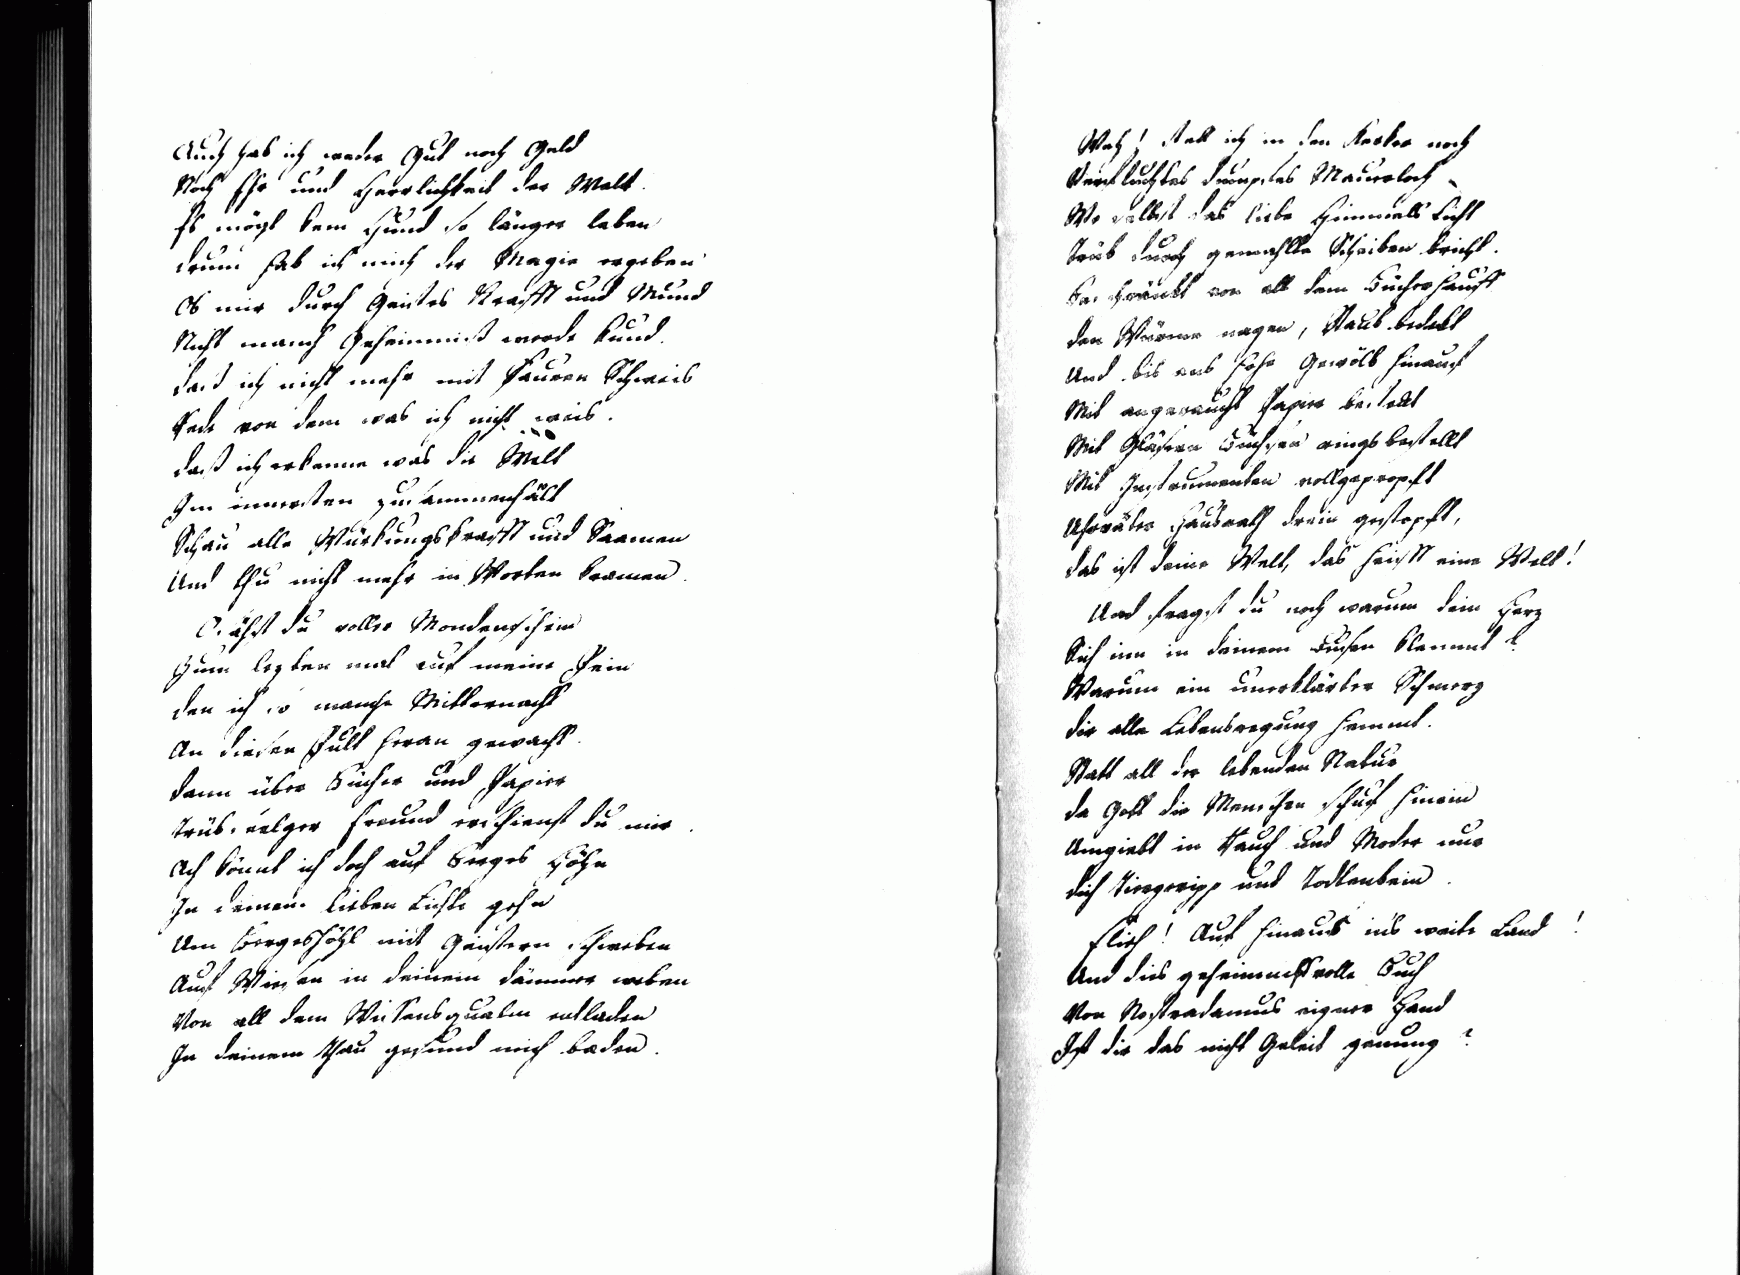 Auch hab ich weder Gut noch Geld
Noch Ehr und Herrlichkeit der Welt.
Es mögt kem Hund so länger leben
drum hab ich mich der Magie ergeben
Ob mir durch Geistes Krafft und Mund
Nicht manch Geheimniß werde kund.
daß ich nicht mehr mit sauren Schweis
Rede von dem was ich nicht weis.
daß ich erkenne was die Welt
Im innersten zusammenhält
Schau alle Würkungskrafft und Saamen
Und thu nicht mehr in Worten kramen.
O sähst du voller Mondenschein
Zum lezten mal auf meine Pein
den ich so manche Mitternacht
An diesen Pult heran gewacht.
dann über Bücher und Papier
Trübseelger Freund erschienst du mir.
Ach könnt ich doch auf Berges Höhn
In deinem lieben Lichte gehn
Um Bergeshöhl mit Geistern schweben
Auf Wiesen in deinem dämmer weben
Von all dem Wissensqualm entladen
In deinem Thau gesund mich baden.
Weh! steck ich in den Kerker noch
Verfluchtes dumpfes Mauerloch
Wo selbst das liebe Himmels Licht
Trüb durch gemahlte Scheiben bricht.
Beschränckt von all dem Bücherhauff
den Würme nagen, Staub bedeckt
Und bis ans hohe Gewölb hinauf
Mit angeraucht Papier besteckt
Mit Gläsern Büchsen rings bestellt
Mit Instrumenten vollgepropft
Uhrväter Hausrath drein gestopft,
das ist deine Welt, das heisst eine Welt!
Und fragst du noch warum dein Herz
Sich inn in deinem Busen klemmt?
Warum ein unerklärter Schmerz
dir alle Lebensregung hemmt.
Statt all der lebenden Natur
da Gott die Menschen schuf hinein
Umgiebt in Rauch und Moder nur
dich Tiergeripp und Todtenbein.
Flieh! Auf hinaus in's weite Land!
Und dies geheimnißvolle Buch
Von Nostradamus eigner Hand
Ist dir das nicht Geleit genung?